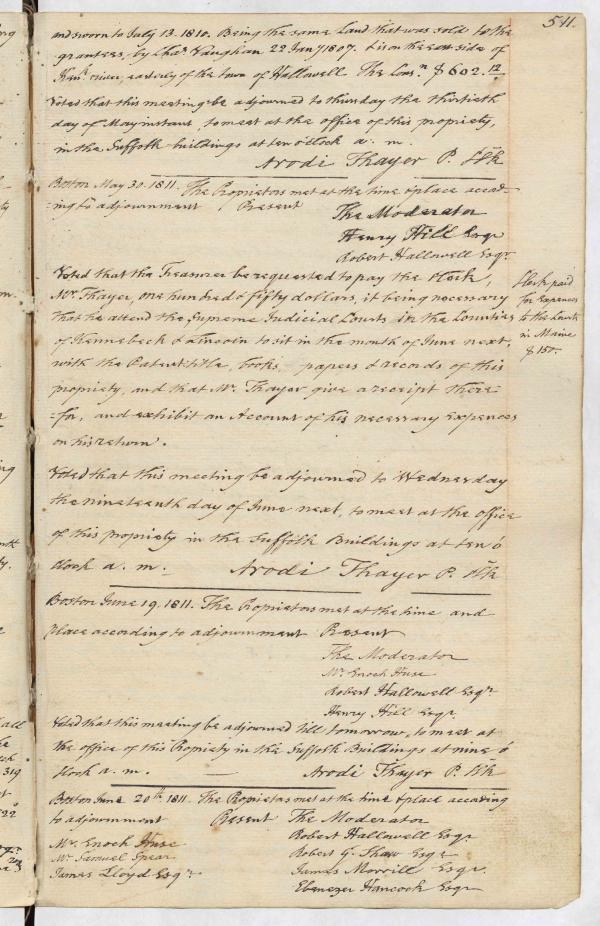 511.
and sworn to July 13. 1810. Being the same Land that was sold to the
grantees, by Chas. Vaughan 22 Jany 1807. & is on the east side of
Kenk. river, easterly of the town of Hallowell The Consn. $602.12
Voted that this meeting be adjourned to thursday the thirtieth
day of May instant, to meet at the office of this propriety,
in the Suffolk buildings at ten o'Clock a. m.
Arodi Thayer P. Clk
Boston May 30. 1811. The Proprietors met at the time & place accord-
=ing to adjournment Present
The Moderator
Henry Hill Esqr
Robert Hallowell Esqr
Voted that the Treasurer be requested to pay the Clerk,
Mr. Thayer, one hundred & fifty dollars, it being necessary
that he attend the Supreme Judicial Courts in the Counties
of Kennebeck & Lincoln to sit in the month of June next,
with the Patent title, books, papers & records of this
propriety, and that Mr. Thayer give a receipt there-
=for, and exhibit an Account of his necessary Expences
on his return.
Clerk paid
for Expences
to the Courts
in Maine
$150.
Voted that this meeting be adjourned to Wednesday
the nineteenth day of June next, to meet at the office
of this propriety in the Suffolk Buildings at ten o
Clock a. m. Arodi Thayer P. Clk
Boston June 19. 1811. The Proprietors met at the time and
place according to adjournment Present
The Moderator
Mr. Enoch Huse
Robert Hallowell Esqr
Henry Hill Esqr.
Voted that this meeting be adjourned till tomorrow, to meet at
the office of this Propriety in the Suffolk Buildings at nine o
Clock a. m. Arodi Thayer P. Clk
Boston June 20th 1811. The Proprietors met at the time & place according
to adjournment Present The Moderator
Robert Hallowell Esqr.
Mr. Enoch Huse
Robert G. Shaw Esqr
Mr Samuel Spear
James Morrill Esqr.
James Lloyd Esqr
Ebenezer Hancock Esqr